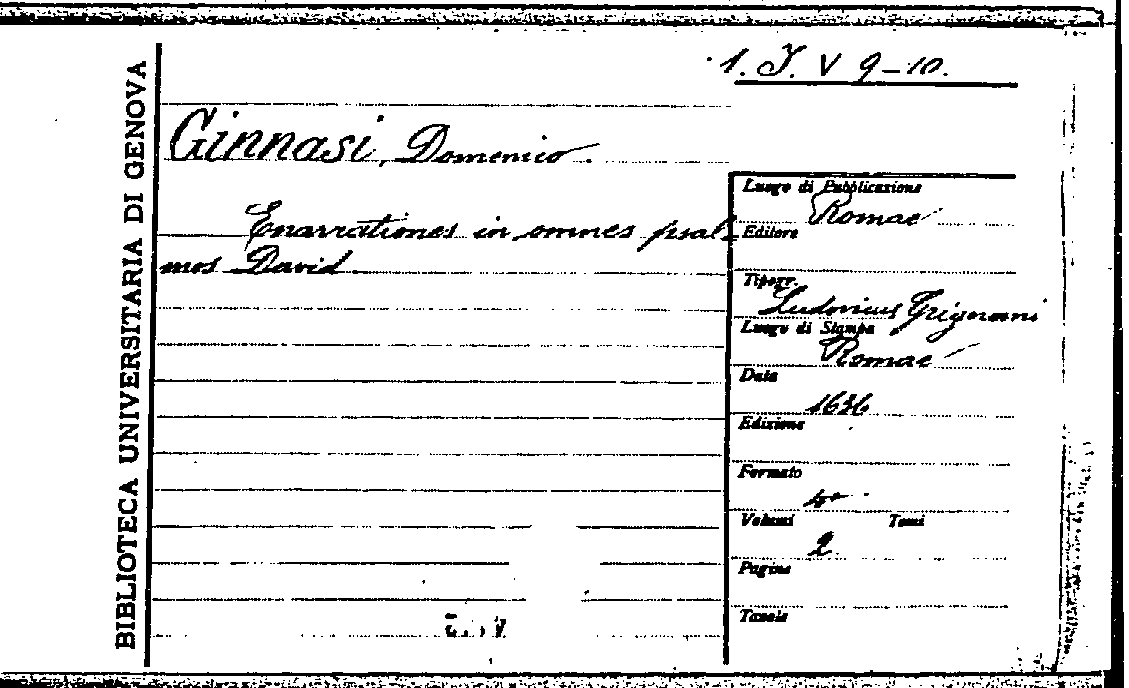 BIBLIOTECA UNIVERSITARIA DI GENOVA
1. J. V 9-10.
Ginnasi, Domenico.
Enarrationes in omnes psal-
mos David
Luogo di Pubblicazione
Romae
Editore
Tipogr.
Ludovicus Grignani
Luogo di Stampa
Romae
Data
1636
Edizione
Formato
4°
Volumi Tomi
2
Pagine
Tavole